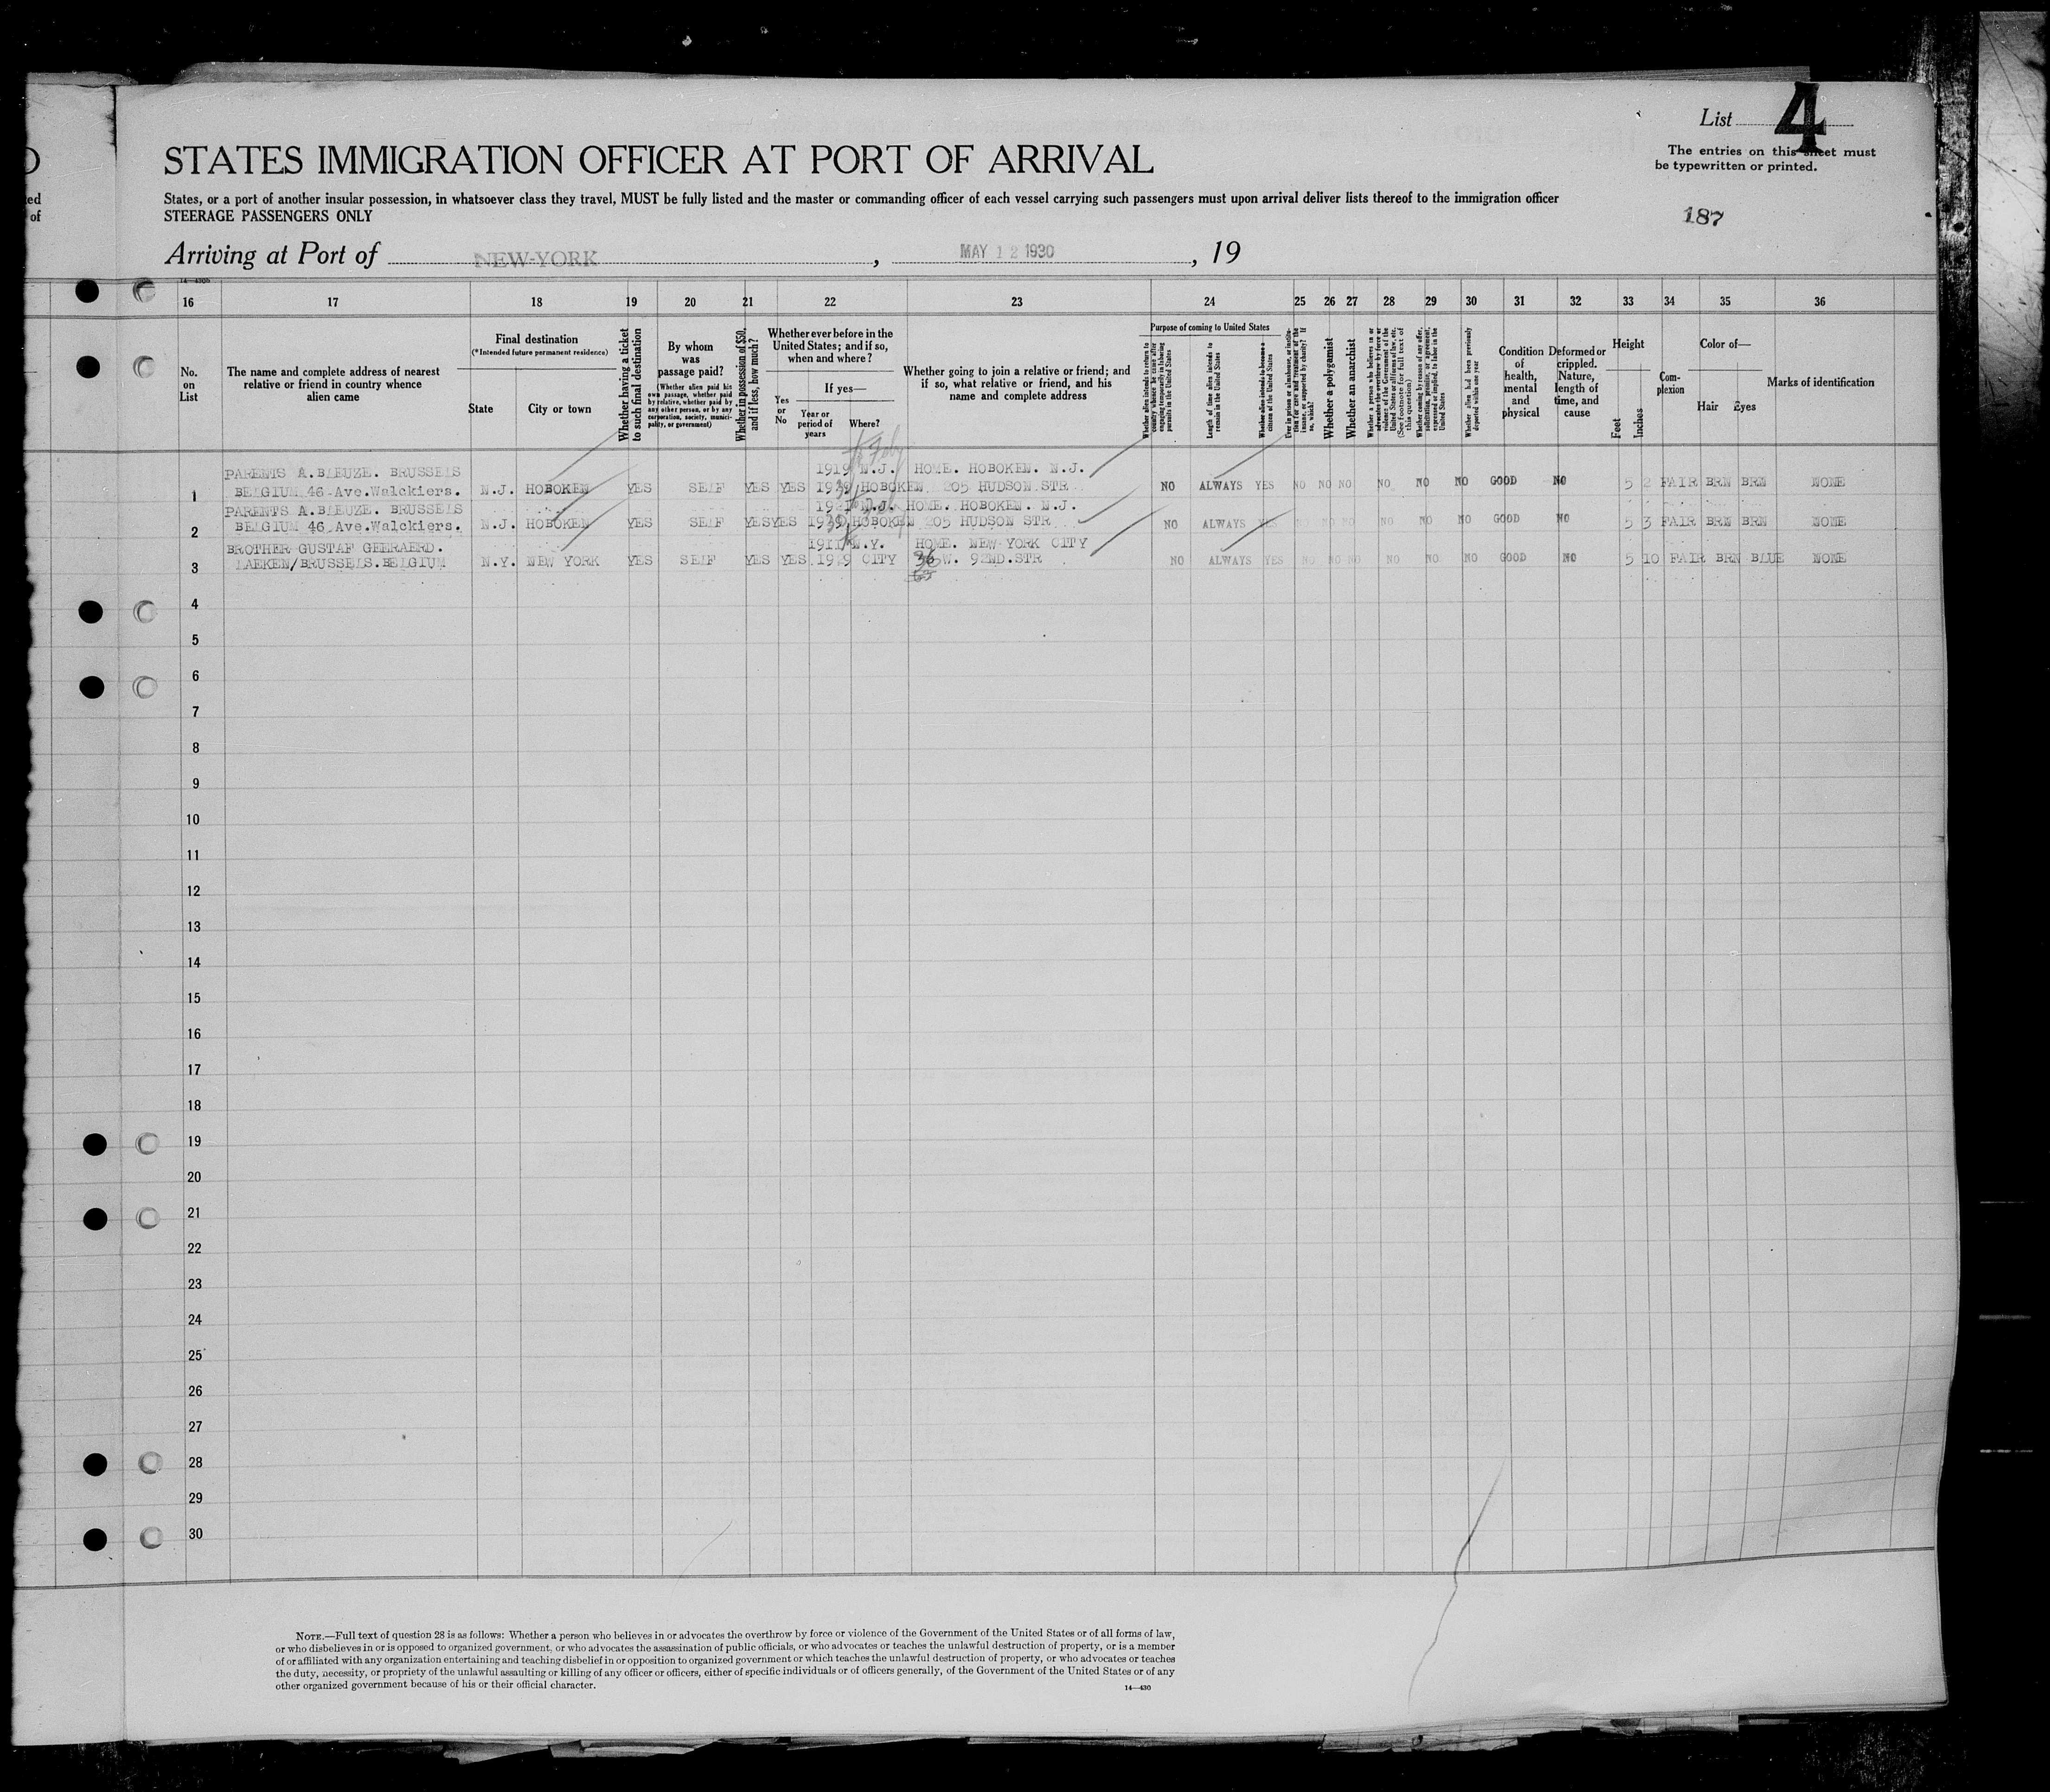 List 4
The entries on this sheet must
be typewritten or printed.
STATES IMMIGRATION OFFICER AT PORT OF ARRIVAL
ed
of
States, or a port of another insular possession, in whatsoever class they travel, MUST be fully listed and the master or commanding officer of each vessel carrying such passengers must upon arrival deliver lists thereof to the immigration officer
STEERAGE PASSENGERS ONLY
187
Arriving at Port of NEW-YORK, MAY 12 1930, 19
16 17 18 19 20 21 22 23 24 25 26 27 28 29 30 31 32 33 34 35 36
No. on List
The name and complete address of nearest relative or friend in country whence alien came
Final destination
(*Intended future permanent residence)
State
City or town
Whether having a ticket to such final destination
By whom was passage paid?
(Whether alien paid his own passage, whether paid by relative, whether paid by any other person, or by any corporation, society, municipality, or government)
Whether in possession of $50, and if less, how much?
Whether ever before in the United States; and if so, when and where?
Yes or No
If yes—
Year or period of years
Where?
Whether going to join a relative or friend; and if so, what relative or friend, and his name and complete address
Purpose of coming to United States
Whether alien intends to return to country whence he came after engaging temporarily in laboring pursuits in the United States
Length of time alien intends to remain in the United States
Whether alien intends to become a citizen of the United States
Ever in prison or almshouse, or institution for care and treatment of the insane, or supported by charity? If so, which?
Whether a polygamist
Whether an anarchist
Whether a person who believes in or advocates the overthrow by force or violence of the Government of the United States or all forms of law, etc. (See footnote for full text of this question)
Whether coming by reason of any offer, solicitation, promise, or agreement, expressed or implied, to labor in the United States
Whether alien had been previously deported within one year
Condition of health, mental and physical
Deformed or crippled. Nature, length of time, and cause
Height
Feet
Inches
Complexion
Color of—
Hair
Eyes
Marks of identification
PARENTS A.BLEUZE. BRUSSELS 1919 N.J. HOME. HOBOKEN. N.J.
1 BELGIUM 46 Ave.Walckiers. N.J. HOBOKEN YES SELF YES YES HOBOKEN 205 HUDSON STR NO ALWAYS YES NO NO NO NO NO NO GOOD NO 5 2 FAIR BRN BRN NONE
PARENTS A.BLEUZE. BRUSSELS N.J. HOME. HOBOKEN. N.J.
2 BELGIUM 46 Ave.Walckiers. N.J. HOBOKEN YES SELF YES YES HOBOKEN 205 HUDSON STR NO ALWAYS YES NO NO NO NO NO NO GOOD NO 5 3 FAIR BRN BRN NONE
BROTHER GUSTAF GEERAERD. 1911 N.Y. HOME. NEW YORK CITY
3 LAEKEN/BRUSSELS.BELGIUM N.Y. NEW YORK YES SELF YES YES 1929 CITY 36 W. 92ND.STR NO ALWAYS YES NO NO NO NO NO NO GOOD NO 5 10 FAIR BRN BLUE NONE
4
5
6
7
8
9
10
11
12
13
14
15
16
17
18
19
20
21
22
23
24
25
26
27
28
29
30
NOTE.—Full text of question 28 is as follows: Whether a person who believes in or advocates the overthrow by force or violence of the Government of the United States or of all forms of law,
or who disbelieves in or is opposed to organized government, or who advocates the assassination of public officials, or who advocates or teaches the unlawful destruction of property, or is a member
of or affiliated with any organization entertaining and teaching disbelief in or opposition to organized government or which teaches the unlawful destruction of property, or who advocates or teaches
the duty, necessity, or propriety of the unlawful assaulting or killing of any officer or officers, either of specific individuals or of officers generally, of the Government of the United States or of any
other organized government because of his or their official character.
14—430